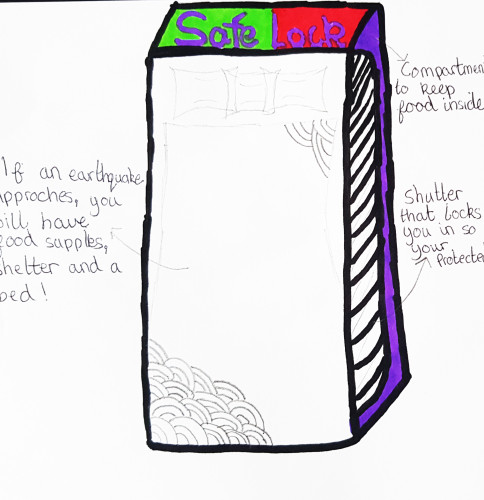 Safe Lock
Compartment
to keep
food inside
If an earthquake
approches, you
will have
food supples,
shelter and a
bed!
Shutter
that locks
you in so
your
protected